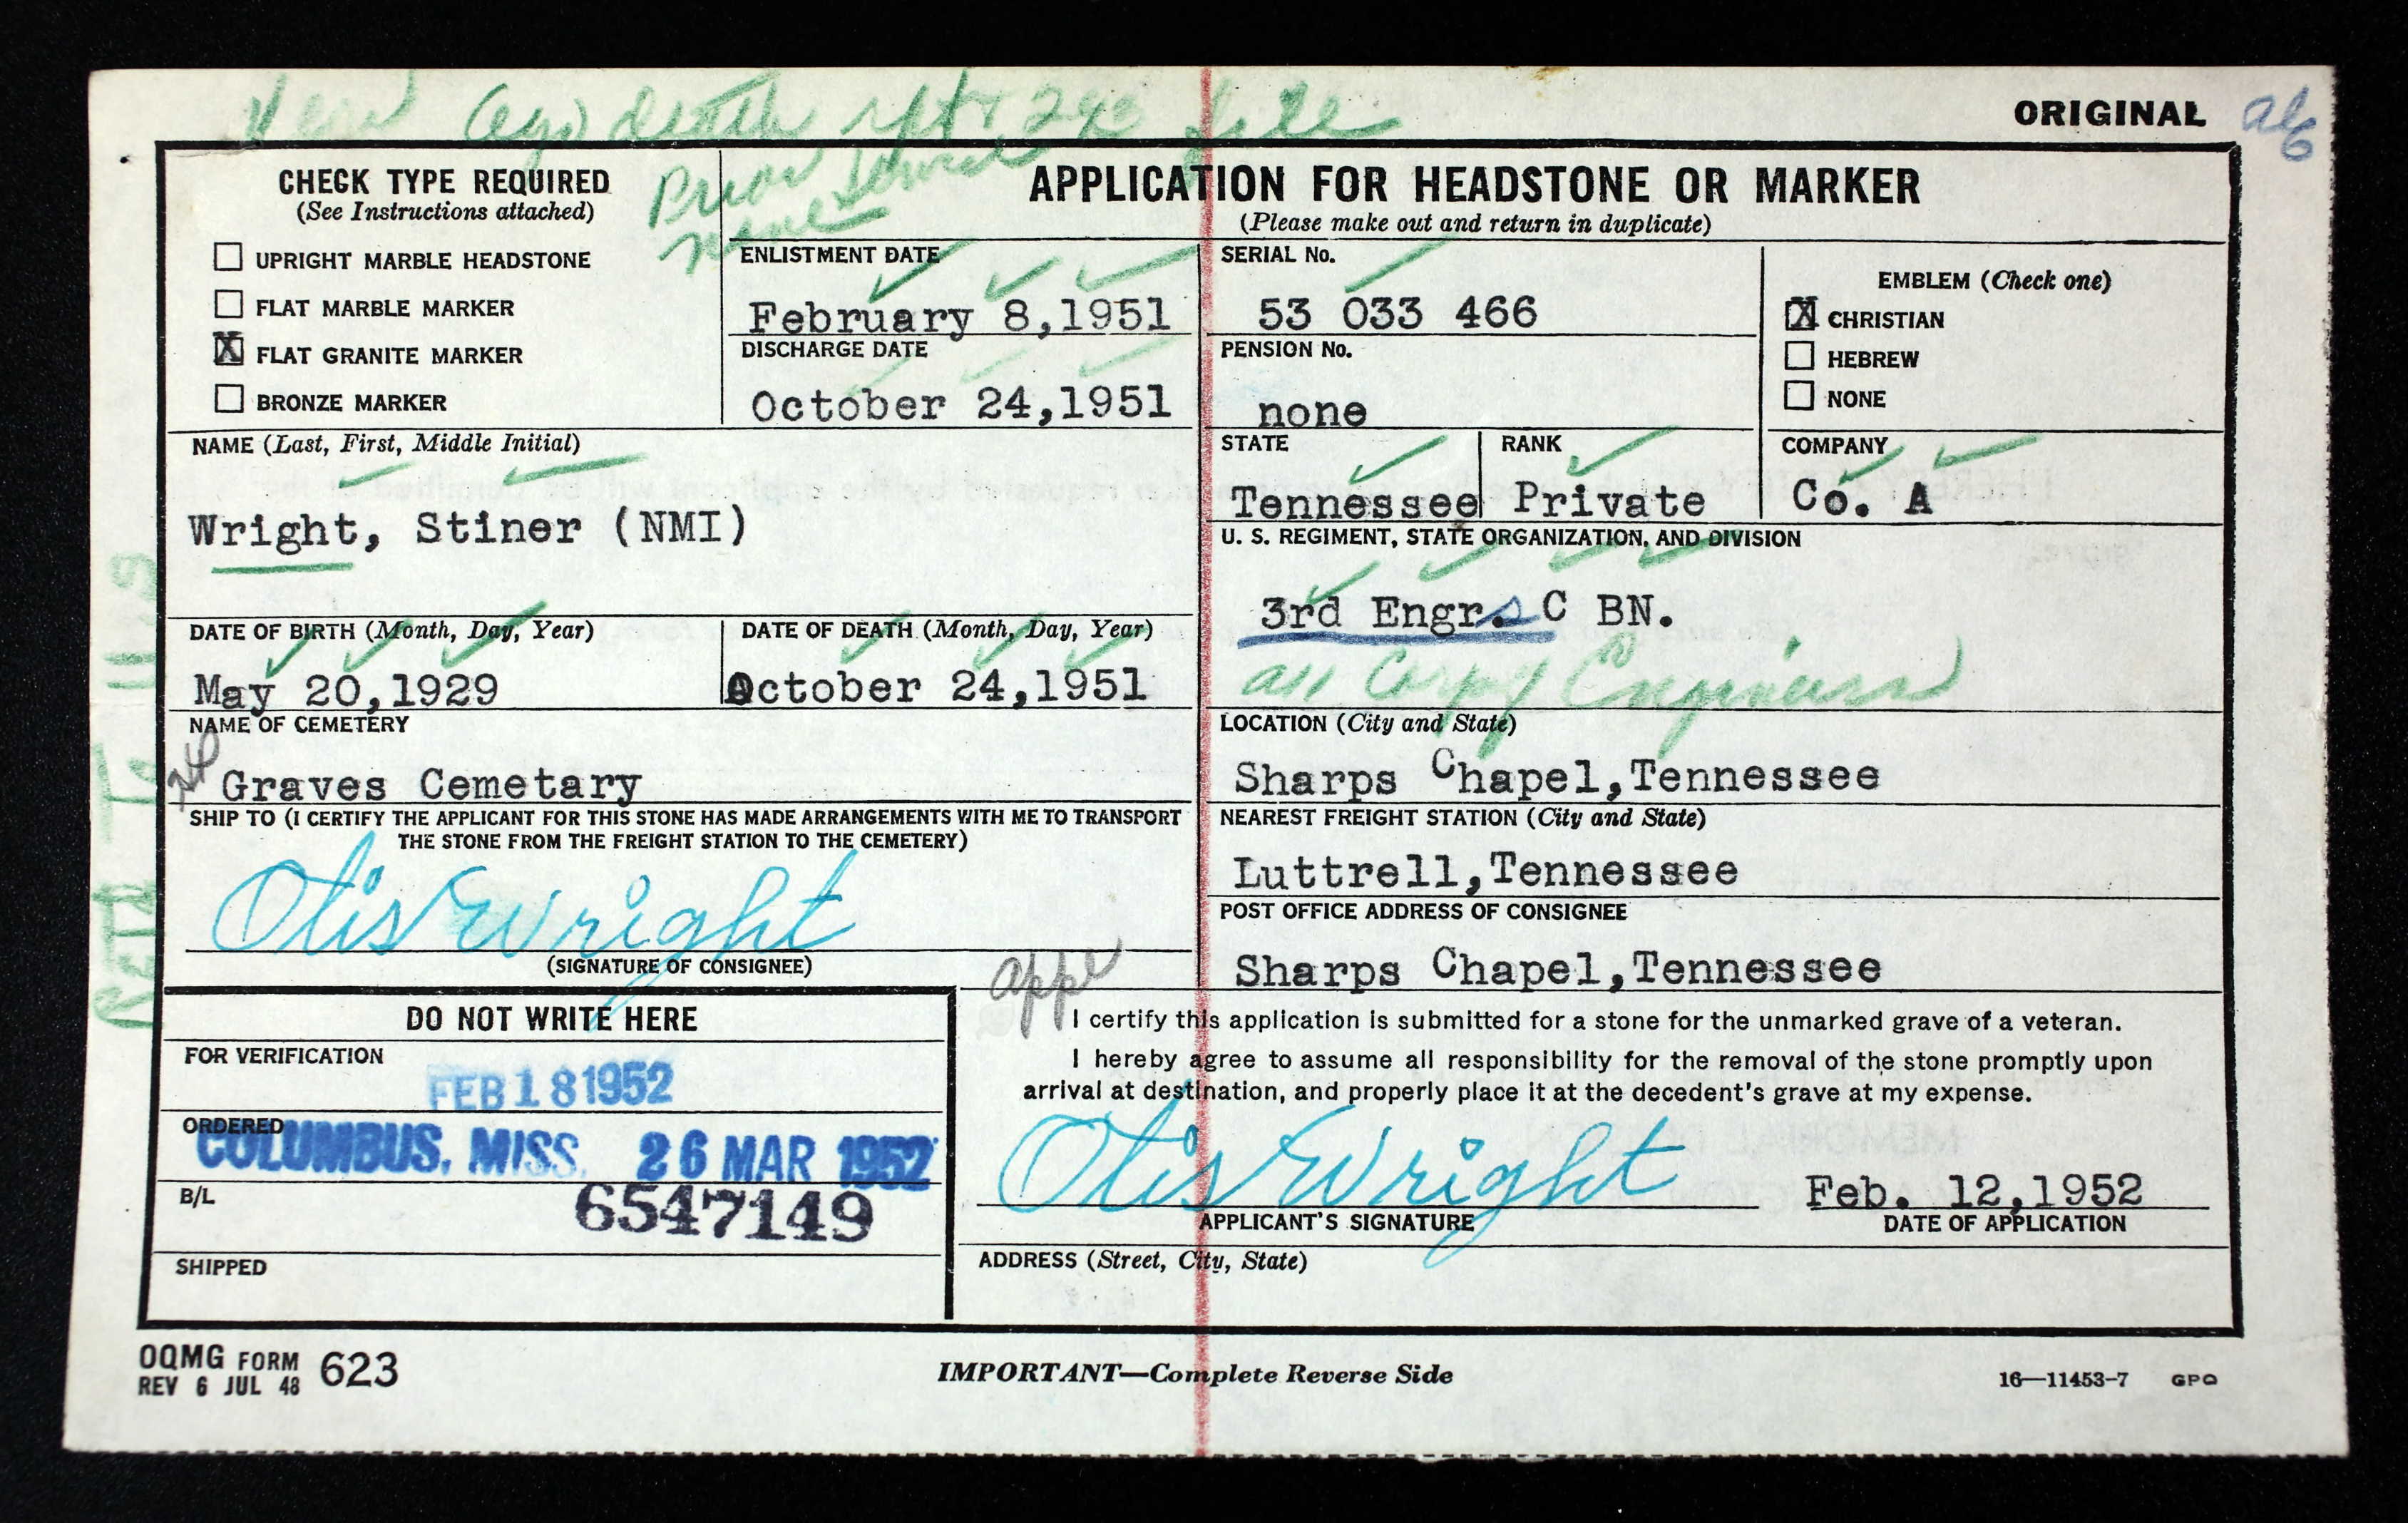 ORIGINAL
death rpt & 293 file
Prior Service
none
CHECK TYPE REQUIRED
(See Instructions attached)
UPRIGHT MARBLE HEADSTONE
FLAT MARBLE MARKER
X FLAT GRANITE MARKER
BRONZE MARKER
APPLICATION FOR HEADSTONE OR MARKER
(Please make out and return in duplicate)
ENLISTMENT DATE
February 8,1951
DISCHARGE DATE
October 24,1951
SERIAL No.
53 033 466
PENSION No.
none
EMBLEM (Check one)
X CHRISTIAN
HEBREW
NONE
NAME (Last, First, Middle Initial)
Wright, Stiner (NMI)
STATE
Tennessee
RANK
Private
COMPANY
Co. A
U. S. REGIMENT, STATE ORGANIZATION, AND DIVISION
3rd Engr. C BN.
Corps of Engineers
DATE OF BIRTH (Month, Day, Year)
May 20,1929
DATE OF DEATH (Month, Day, Year)
October 24,1951
NAME OF CEMETERY
Graves Cemetary
LOCATION (City and State)
Sharps Chapel,Tennessee
SHIP TO (I CERTIFY THE APPLICANT FOR THIS STONE HAS MADE ARRANGEMENTS WITH ME TO TRANSPORT
THE STONE FROM THE FREIGHT STATION TO THE CEMETERY)
Otis Wright
(SIGNATURE OF CONSIGNEE)
NEAREST FREIGHT STATION (City and State)
Luttrell,Tennessee
POST OFFICE ADDRESS OF CONSIGNEE
Sharps Chapel,Tennessee
appl
DO NOT WRITE HERE
FOR VERIFICATION
FEB 18 1952
ORDERED
COLUMBUS, MISS. 26 MAR 1952
B/L
6547149
SHIPPED
I certify this application is submitted for a stone for the unmarked grave of a veteran.
I hereby agree to assume all responsibility for the removal of the stone promptly upon
arrival at destination, and properly place it at the decedent's grave at my expense.
Otis Wright
APPLICANT'S SIGNATURE
Feb. 12,1952
DATE OF APPLICATION
ADDRESS (Street, City, State)
OQMG FORM 623
REV 6 JUL 48
IMPORTANT—Complete Reverse Side
16—11453-7 GPO